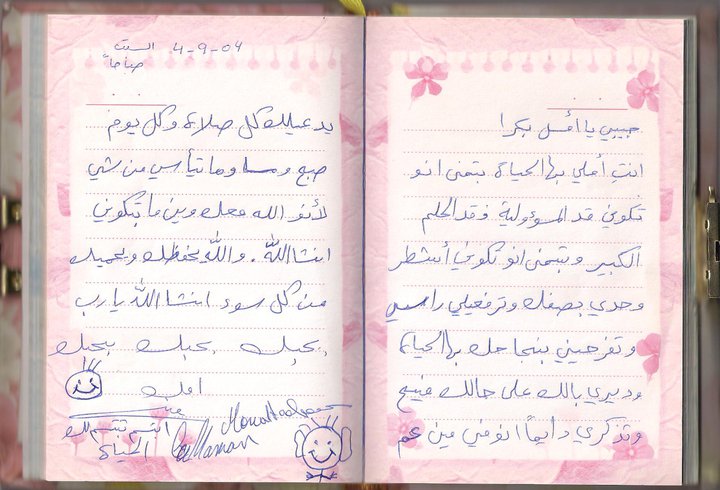 حبيبي يا أمل بكرا
انتِ أملي بهالحياة بتمنى انو
تكوني قد المسؤولية وقد الحلم
الكبير وبتمنى انو تكوني أشطر
وحدي بصفك وترفعيلي راسي
وتفرحيني بنجاحك بهالحياة
وديري بالك على حالك منيح
وتذكري دايماً انو في مين عم
السبت 4-9-04
صباحاً
يدعيلك كل صلاة وكل يوم
صبح ومسا وما تيأسي من شي
لأنو الله معك وين ما بتكوني
انشاالله. والله يحفظك ويحميك
من كل سوء انشاالله يارب
بحبك بحبك بحبك
امك
ابتسم تبتسم لك
الحياة